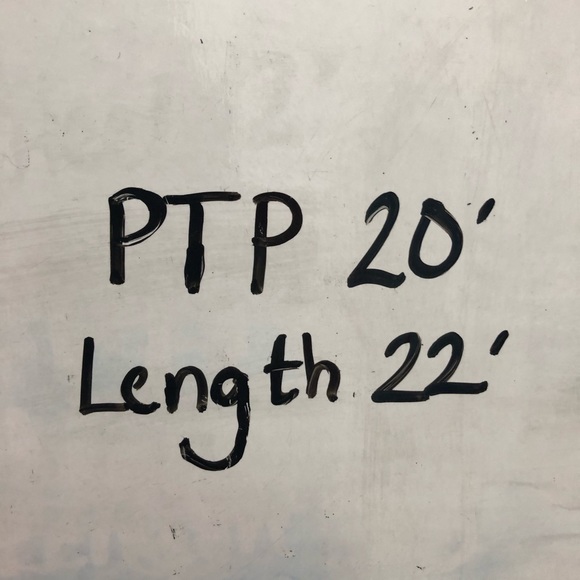 PTP 20'
Length 22'